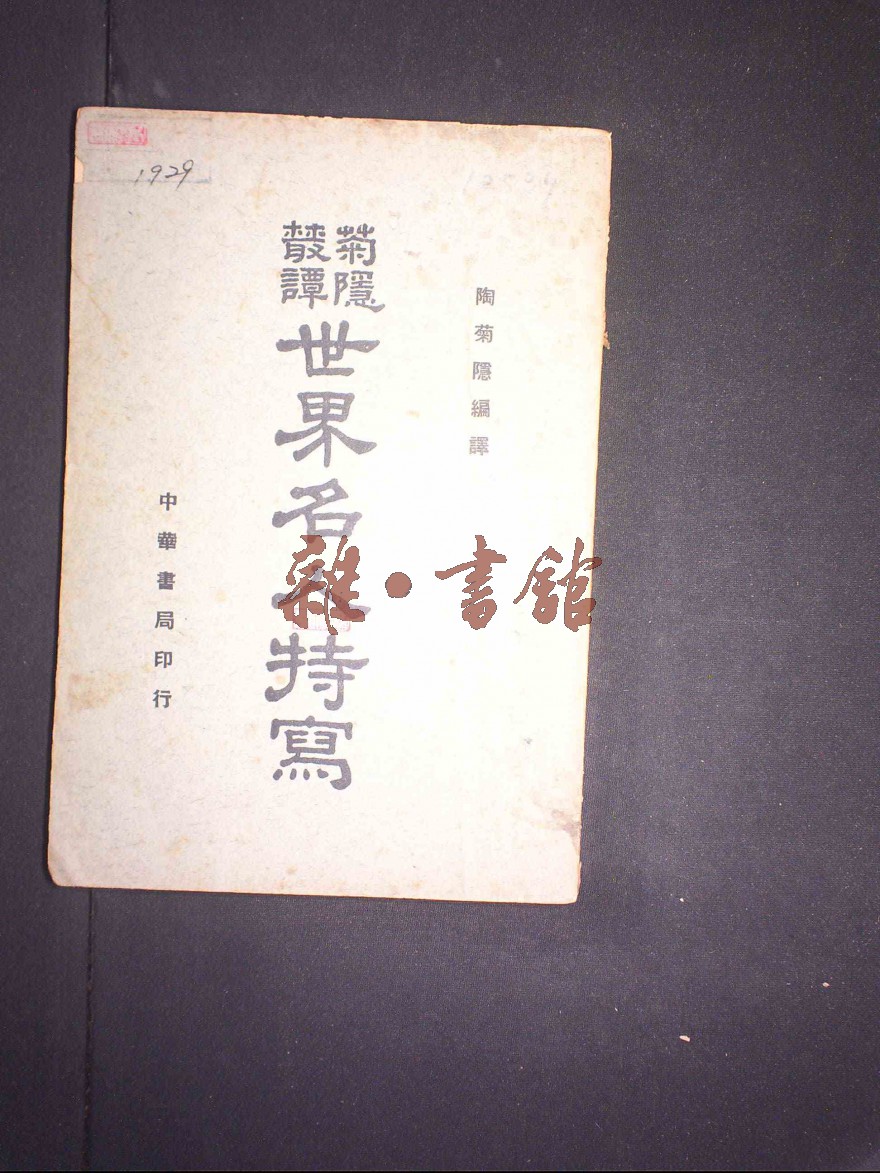 1929
陶菊隱編譯
菊隱
叢譚
世界名人特寫
中華書局印行
雜·書館